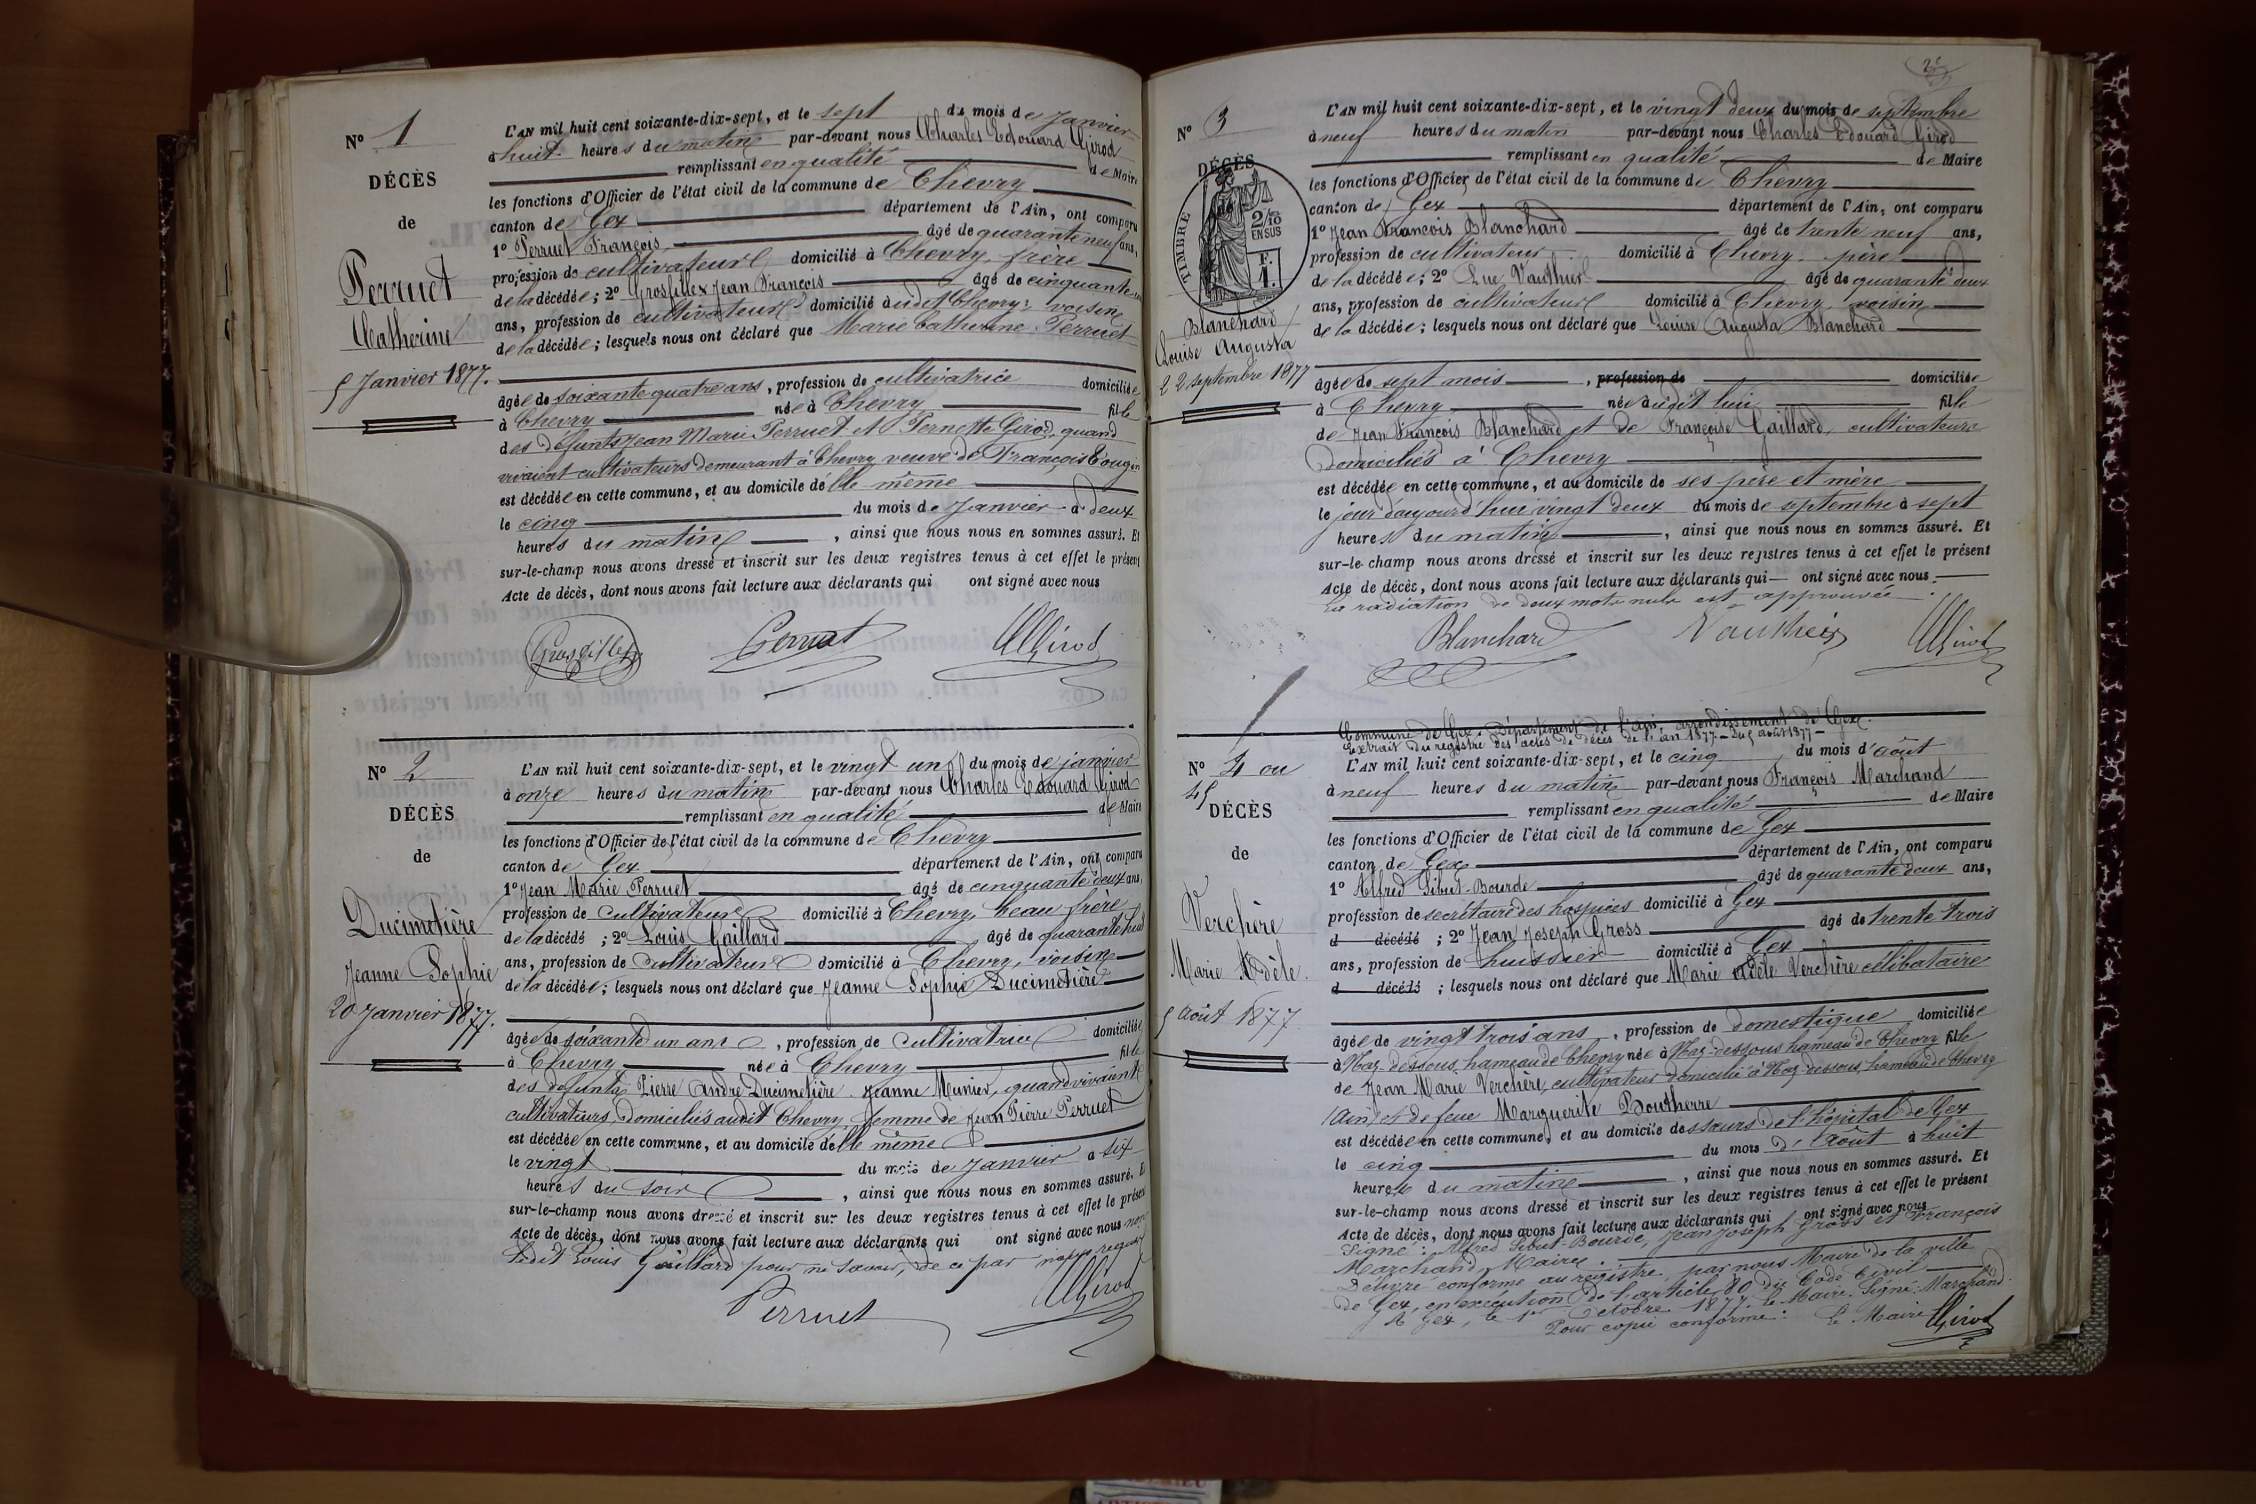 N° 1
DÉCÈS
de
Perruet
Catherine
5 Janvier 1877.
L'AN mil huit cent soixante-dix-sept, et le sept du mois de Janvier
à huit heures du matin par-devant nous Charles Edouard Girod
remplissant en qualité de Maire
les fonctions d'Officier de l'état civil de la commune de Chevry
canton de Gex département de l'Ain, ont comparu
1° Perruet François âgé de quarante neuf ans,
profession de cultivateur domicilié à Chevry, frère
de la décédée; 2° Grosfillex Jean François âgé de cinquante
ans, profession de cultivateur domicilié à udit Chevry, voisin
de la décédée; lesquels nous ont déclaré que Marie Catherine Perruet
âgée de soixante quatre ans, profession de cultivatrice domiciliée
à Chevry née à Chevry fille
des défunts Jean Marie Perruet et Pernette Girod, quand
vivaient cultivateurs demeurant à Chevry veuve de François Cougin
est décédée en cette commune, et au domicile de lle même
le cinq du mois de Janvier à deux
heures du matin, ainsi que nous nous en sommes assuré. Et
sur-le-champ nous avons dressé et inscrit sur les deux registres tenus à cet effet le présent
Acte de décès, dont nous avons fait lecture aux déclarants qui ont signé avec nous
Grosfillex Perruet Girod
N° 2
DÉCÈS
de
Ducimetière
Jeanne Sophie
20 Janvier 1877.
L'AN mil huit cent soixante-dix-sept, et le vingt un du mois de janvier
à onze heures du matin par-devant nous Charles Edouard Girod
remplissant en qualité de Maire
les fonctions d'Officier de l'état civil de la commune de Chevry
canton de Gex département de l'Ain, ont comparu
1° Jean Marie Perruet âgé de cinquante deux ans,
profession de cultivateur domicilié à Chevry, beau frère
de la décédé ; 2° Louis Gaillard âgé de quarante huit
ans, profession de cultivateur domicilié à Chevry, voisin
de la décédée; lesquels nous ont déclaré que Jeanne Sophie Ducimetière
âgée de soixante un ans, profession de cultivatrice domiciliée
à Chevry née à Chevry fille
des défunts Pierre André Ducimetière Jeanne Munier, quand vivaient
cultivateurs, domiciliés audit Chevry, femme de Jean Pierre Perruet
est décédée en cette commune, et au domicile de lle même
le vingt du mois de Janvier à six
heures du soir, ainsi que nous nous en sommes assuré. Et
sur-le-champ nous avons dressé et inscrit sur les deux registres tenus à cet effet le présent
Acte de décès, dont nous avons fait lecture aux déclarants qui ont signé avec nous non
ledit Louis Gaillard pour ne savoir, de ce par nous requis
Perruet Girod
2e
N° 3
DÉCÈS
de
TIMBRE
2/10
EN SUS
F.
1.
Blanchard
Louise Augusta
22 septembre 1877
L'AN mil huit cent soixante-dix-sept, et le vingt deux du mois de septembre
à neuf heures du matin par-devant nous Charles Edouard Girod
remplissant en qualité de Maire
les fonctions d'Officier de l'état civil de la commune de Chevry
canton de Gex département de l'Ain, ont comparu
1° Jean François Blanchard âgé de trente neuf ans,
profession de cultivateur domicilié à Chevry, père
de la décédée; 2° Luc Vauthier âgé de quarante deux
ans, profession de cultivateur domicilié à Chevry, voisin
de la décédée; lesquels nous ont déclaré que Louise Augusta Blanchard
âgée de sept mois, profession de domiciliée
à Chevry née audit lieu fille
de Jean François Blanchard et de Françoise Gaillard, cultivateurs
domiciliés à Chevry
est décédée en cette commune, et au domicile de ses père et mère
le jour d'aujourd'hui vingt deux du mois de septembre à sept
heures du matin, ainsi que nous nous en sommes assuré. Et
sur-le-champ nous avons dressé et inscrit sur les deux registres tenus à cet effet le présent
Acte de décès, dont nous avons fait lecture aux déclarants qui ont signé avec nous.
La radiation de deux mots nuls est approuvée.
Blanchard Vauthier Girod
N° 4 ou
45
DÉCÈS
de
Verchère
Marie Adèle.
5 Août 1877
Commune de Gex. Département de l'Ain, arrondissement de Gex.
Extrait du registre des actes de décès de l'an 1877 - du 5 août 1877 -
L'AN mil huit cent soixante-dix-sept, et le cinq du mois d'août
à neuf heures du matin par-devant nous François Marchand
remplissant en qualité de Maire
les fonctions d'Officier de l'état civil de la commune de Gex
canton de Gex département de l'Ain, ont comparu
1° Alfred Sibut-Bourde âgé de quarante deux ans,
profession de secrétaire des hospices domicilié à Gex
d décédé ; 2° Jean Joseph Gross âgé de trente trois
ans, profession de huissier domicilié à Gex
d décédé ; lesquels nous ont déclaré que Marie Adèle Verchère célibataire
âgée de vingt trois ans, profession de domestique domiciliée
à Naz-dessous, hameau de Chevry née à Naz-dessous hameau de Chevry fille
de Jean Marie Verchère, cultivateur domicilié à Naz-dessous, hameau de Chevry
(Ain) et de feue Marguerite Boutherre
est décédée en cette commune, et au domicile des sœurs de l'hôpital de Gex
le cinq du mois d'Août à huit
heures du matin, ainsi que nous nous en sommes assuré. Et
sur-le-champ nous avons dressé et inscrit sur les deux registres tenus à cet effet le présent
Acte de décès, dont nous avons fait lecture aux déclarants qui ont signé avec nous
Signé: Alfred Sibut-Bourde, Jean Joseph Gross et François
Marchand, Maire.
Délivré conforme au registre, par nous Maire de la ville
de Gex, en exécution de l'article 80 du Code Civil
A Gex, le 1er Octobre 1877. Le Maire. Signé: Marchand.
Pour copie conforme: Le Maire Girod